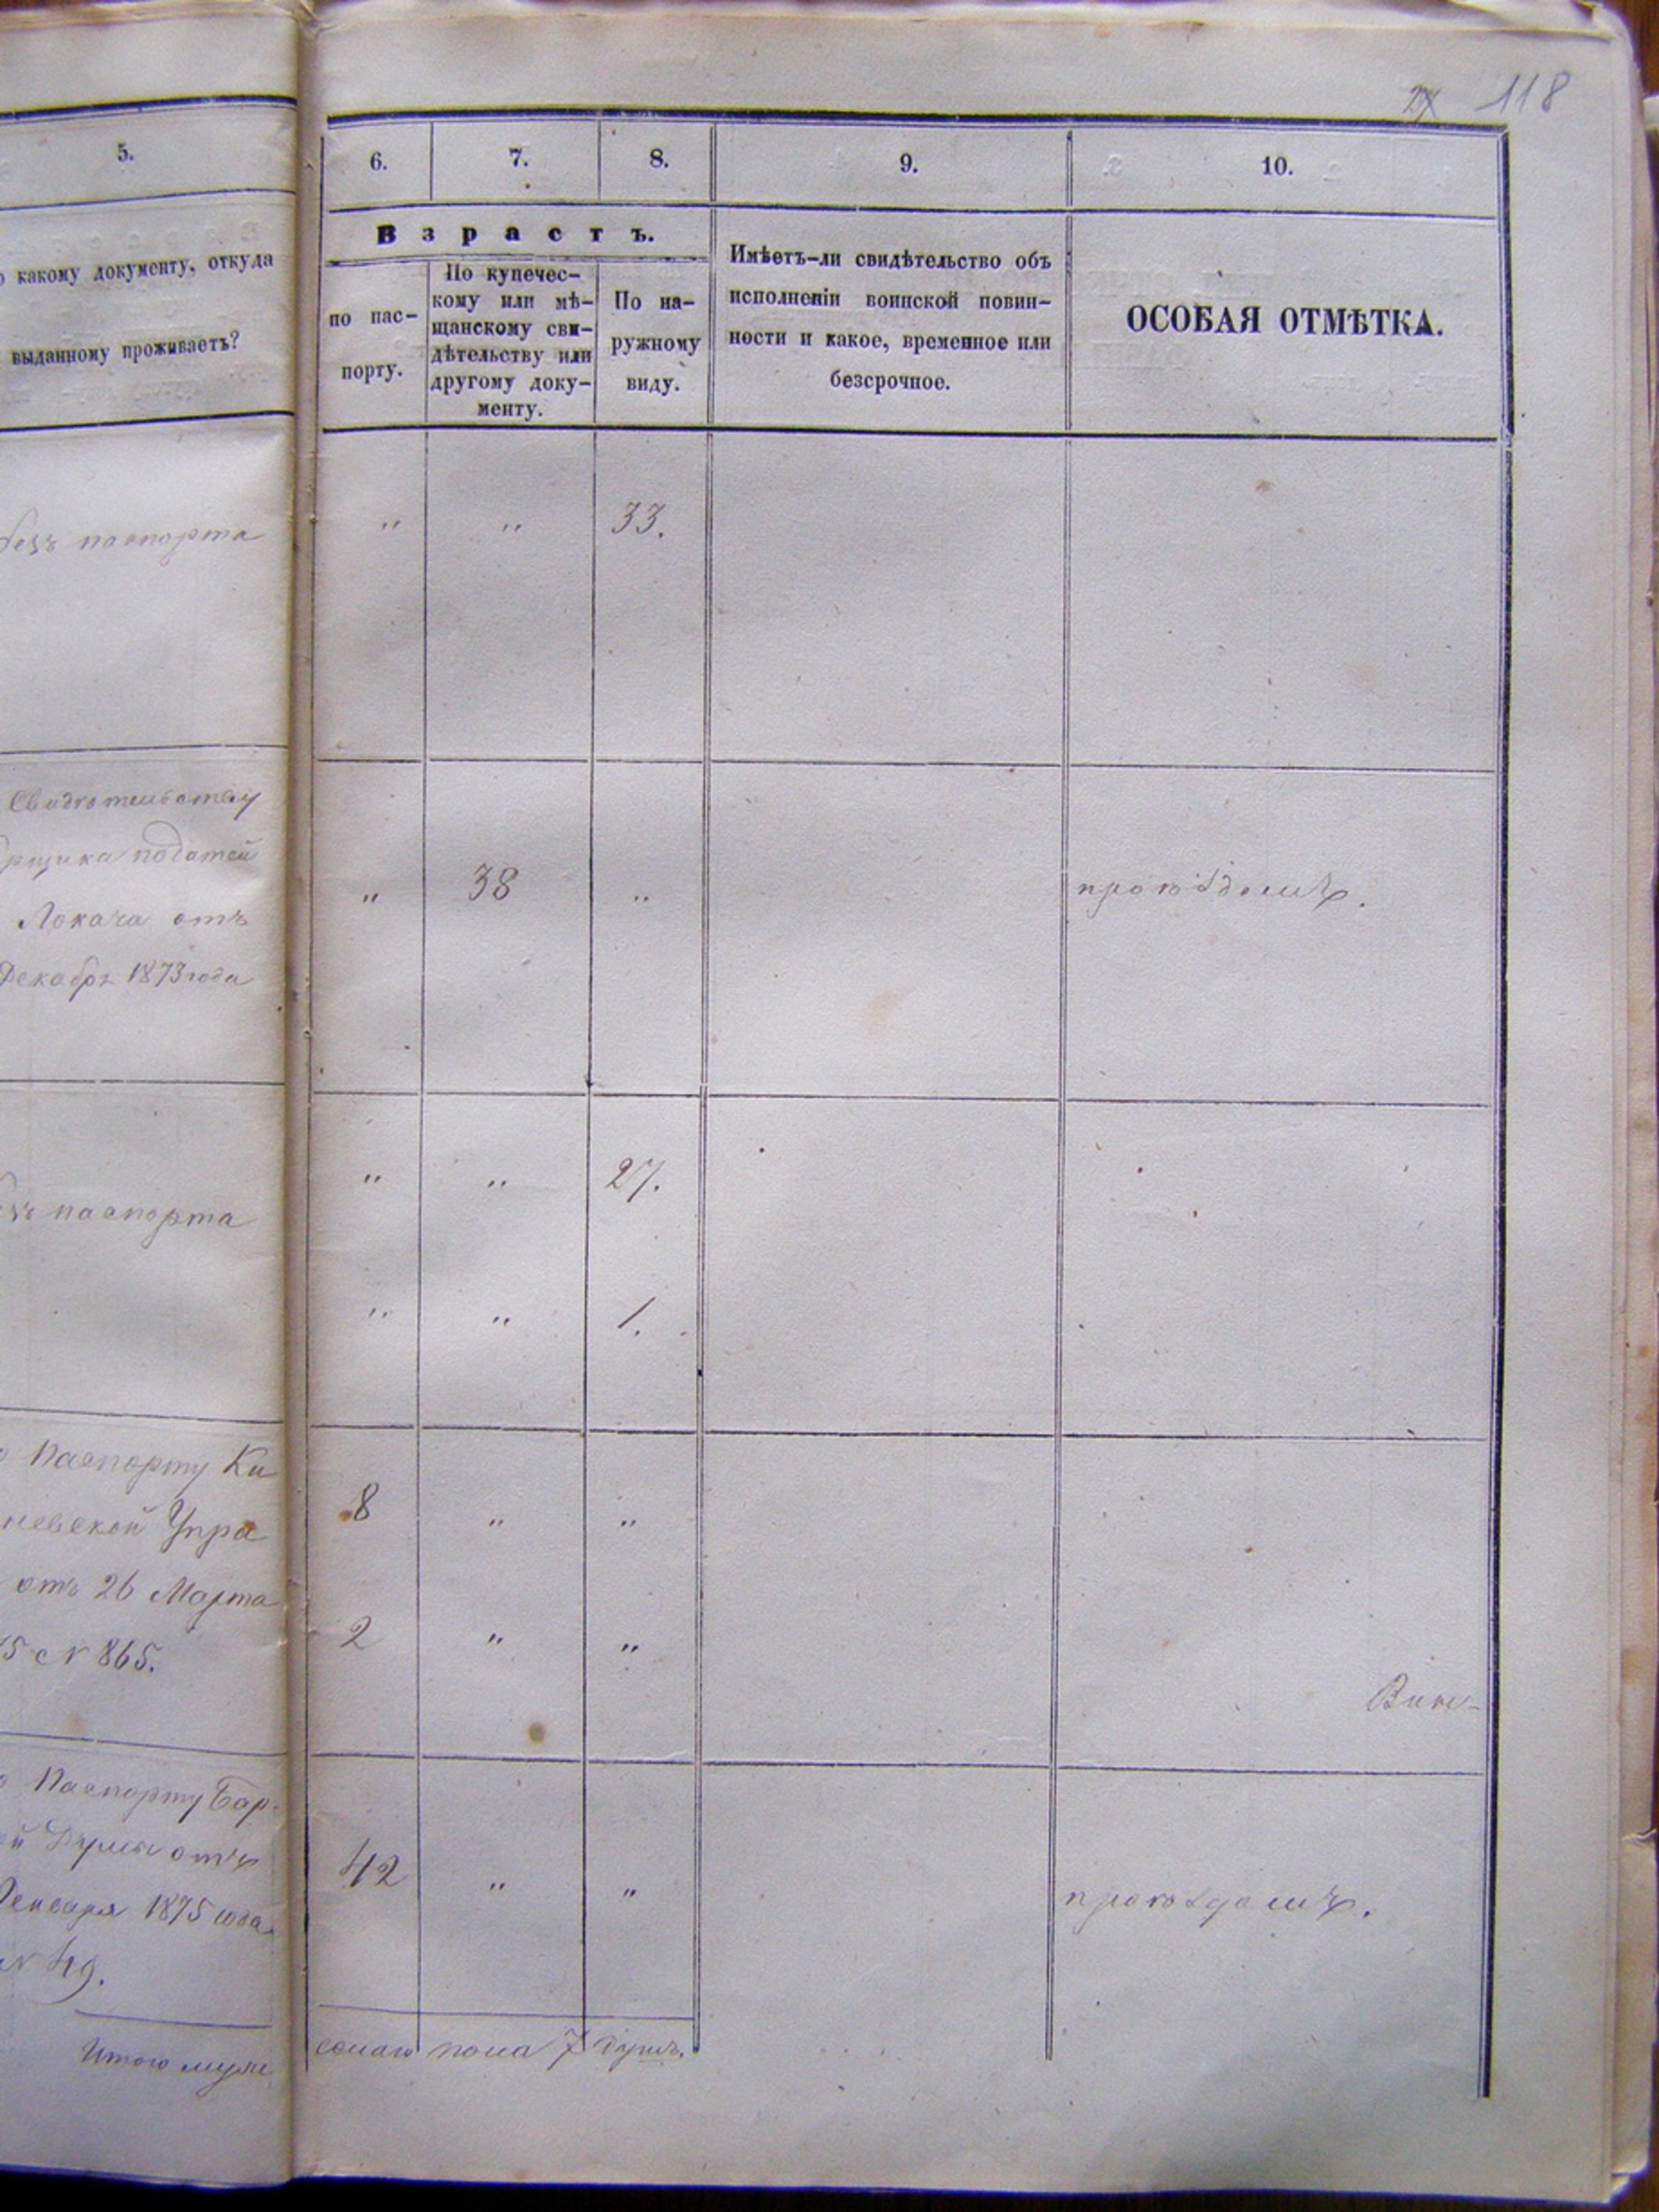 118
5.
6.
7.
8.
9.
10.
какому документу, откуда
выданному проживаетъ?
Возрастъ.
по пас-
порту.
По купечес-
кому или мѣ-
щанскому сви-
дѣтельству или
другому доку-
менту.
По на-
ружному
виду.
Имѣетъ-ли свидѣтельство объ
исполненіи воинской повин-
ности и какое, временное или
безсрочное.
ОСОБАЯ ОТМѢТКА.
безъ паспорта
" " 33.
Свидѣтельству
рщика податей
Локача отъ
Декабря 1873 года
" 38 "
проѣздомъ.
паспорта
" " 27.
" " 1.
Паспорту Ки
невской Упра
отъ 26 Марта
5 № 865.
8 " "
2 " "
Паспорту Бар-
й Думы отъ
Января 1875 года
№ 49.
42 " "
проѣздомъ.
Итого муже
скаго пола 7 душъ.